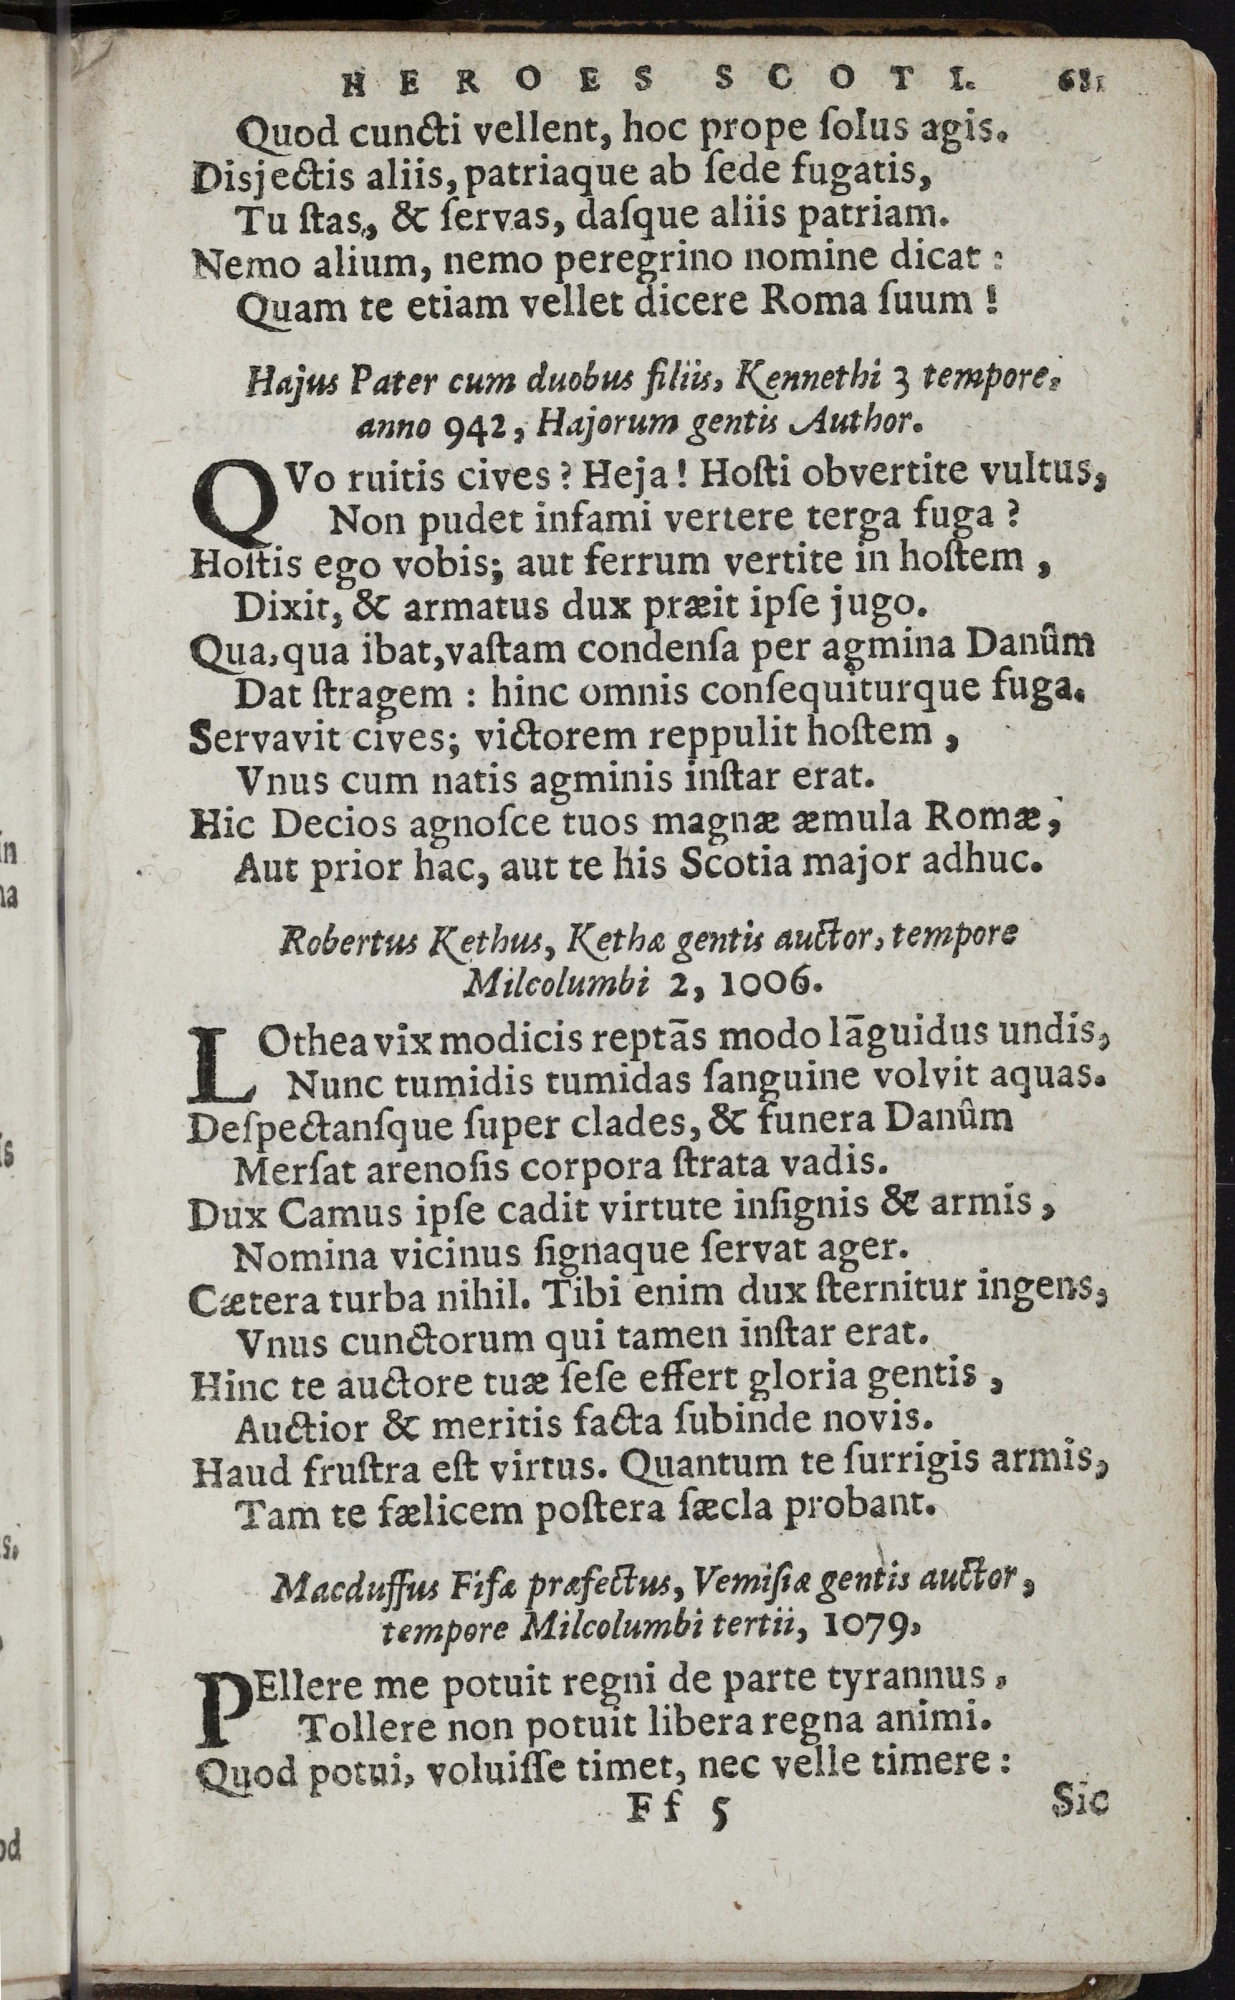 HEROES SCOTI. 681
Quod cuncti vellent, hoc prope ſolus agis.
Disjectis aliis, patriaque ab ſede fugatis,
Tu ſtas, & ſervas, daſque aliis patriam.
Nemo alium, nemo peregrino nomine dicat :
Quam te etiam vellet dicere Roma ſuum !
Hajus Pater cum duobus filiis, Kennethi 3 tempore,
anno 942, Hajorum gentis Author.
QVo ruitis cives ? Heja ! Hoſti obvertite vultus,
Non pudet infami vertere terga fuga ?
Hoſtis ego vobis; aut ferrum vertite in hoſtem ,
Dixit, & armatus dux præit ipſe jugo.
Qua, qua ibat, vaſtam condenſa per agmina Danûm
Dat ſtragem : hinc omnis conſequiturque fuga.
Servavit cives; victorem reppulit hoſtem ,
Vnus cum natis agminis inſtar erat.
Hic Decios agnoſce tuos magnæ æmula Romæ,
Aut prior hac, aut te his Scotia major adhuc.
Robertus Kethus, Kethæ gentis auctor, tempore
Milcolumbi 2, 1006.
LOthea vix modicis reptās modo lāguidus undis,
Nunc tumidis tumidas ſanguine volvit aquas.
Deſpectanſque ſuper clades, & funera Danûm
Merſat arenoſis corpora ſtrata vadis.
Dux Camus ipſe cadit virtute inſignis & armis ,
Nomina vicinus ſignaque ſervat ager.
Cætera turba nihil. Tibi enim dux ſternitur ingens,
Vnus cunctorum qui tamen inſtar erat.
Hinc te auctore tuæ ſeſe effert gloria gentis ,
Auctior & meritis facta ſubinde novis.
Haud fruſtra eſt virtus. Quantum te ſurrigis armis,
Tam te fælicem poſtera ſæcla probant.
Macduffus Fifæ præfectus, Vemiſiæ gentis auctor,
tempore Milcolumbi tertii, 1079,
PEllere me potuit regni de parte tyrannus ,
Tollere non potuit libera regna animi.
Quod potui, voluiſſe timet, nec velle timere :
Ff 5 Sic